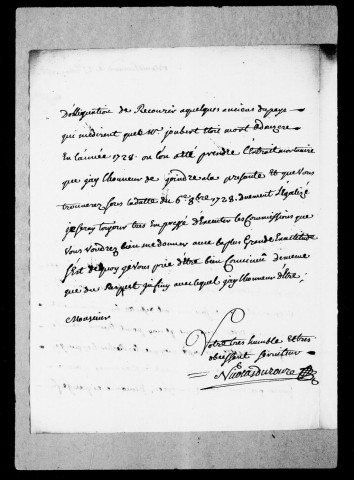 dobligation de Recourir aquelques anciens du pays
qui medirent que le Sr. joubert Etoit mort
En l'année 1728. ou l'on esté prendre l'Extrait mortuaire
que jay lhonneur de joindre ala presente Et que Vous
trouverez sous la datte du 6e. 8bre 1728. duement Légalizé
je seray toujour tres Empressé d'Executer les Commissions que
Vous Voudrez bien me donner avec la plus Grande Exactitude
c'Est dequoy je Vous prie d'être bien Convaincû de meme
que du Respect avec lequel jay lhonneur d'être,
Monsieur
Votre tres humble Et tres
obeissant serviteur
Nicolas